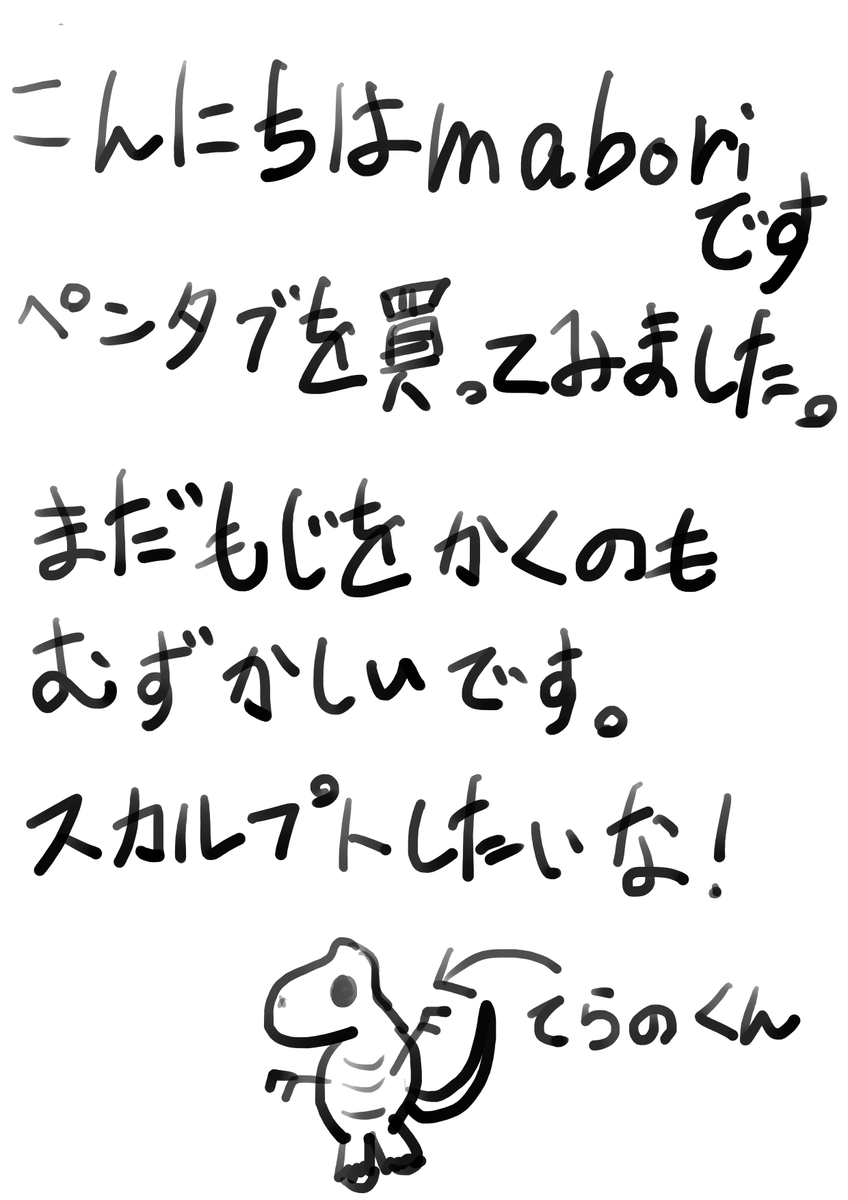 こんにちはmabori
です
ペンタブを買ってみました。
まだもじをかくのも
むずかしいです。
スカルプトしたいな!
てらのくん